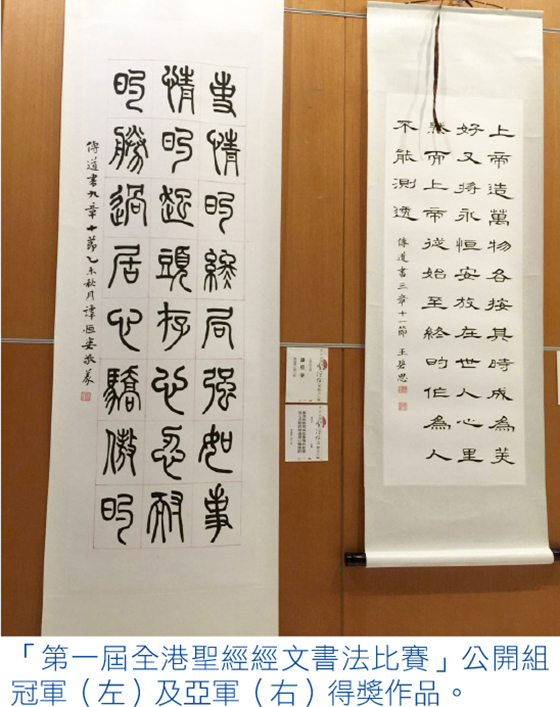 事情的終局强如事
情的起頭存心忍耐
的勝過居心驕傲的
傳道書九章十節乙未秋月譚恒姿敬篆
上帝造萬物各按其時成為美
好又將永恒安放在世人心里
然而上帝從始至終的作為人
不能測透
傳道書三章十一節 王碧思
「第一屆全港聖經經文書法比賽」公開組
冠軍（左）及亞軍（右）得獎作品。